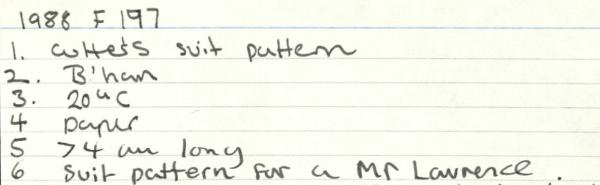 1988 F 197
1. cutter's suit pattern
2. B'ham
3. 20th C
4 paper
5 >4 cm long
6 suit pattern for a Mr Lawrence.